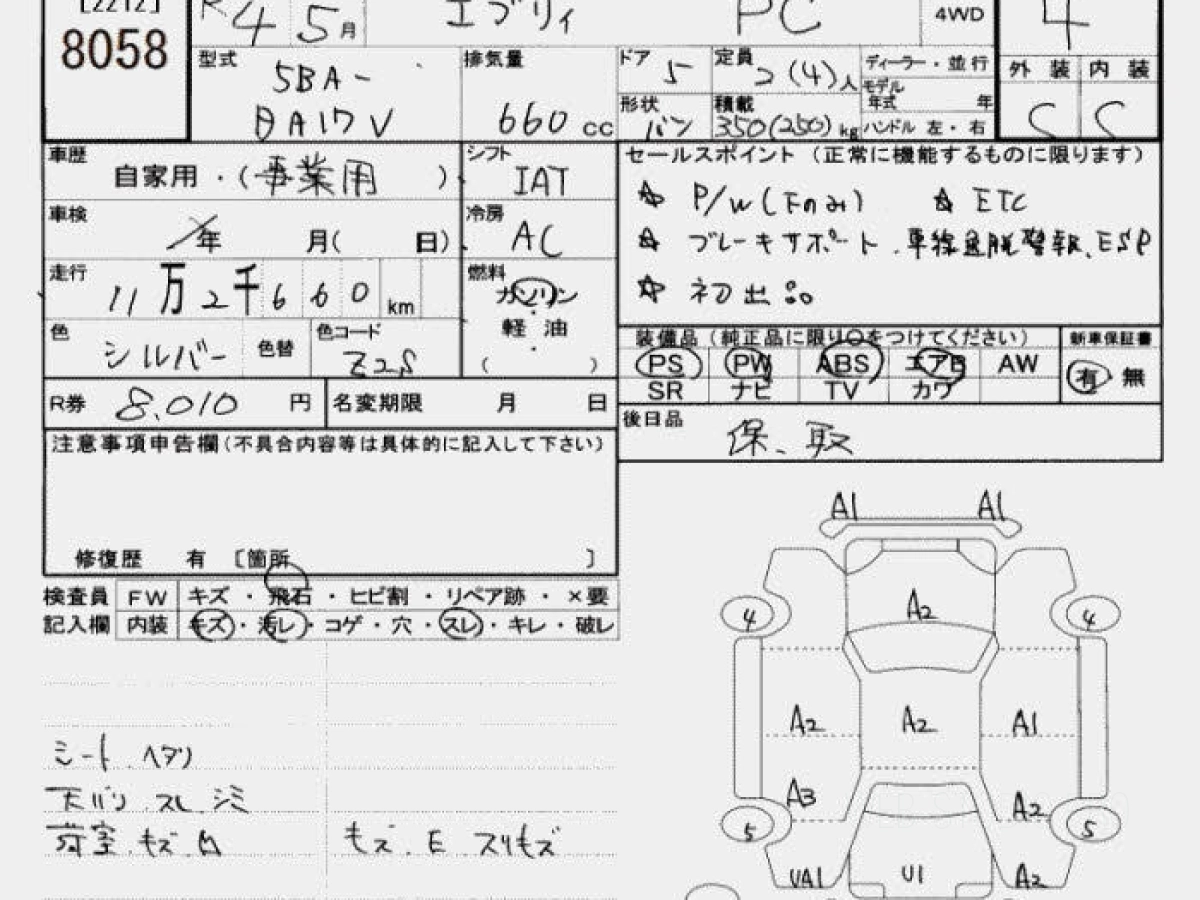 [2212]
8058
R 4 5月 エブリィ PC 4WD 4
型式 5BA- DA17V
排気量 660 cc
ドア 5 定員 2(4)人 ディーラー・並行
モデル年式 年
形状 バン 積載 350(250)kg ハンドル 左・右
外装 内装
C C
車歴 自家用・(事業用)
シフト IAT
車検 年 月( 日)
冷房 AC
走行 11万2千660 km
燃料 ガソリン
軽油
( )
色 シルバー 色替 色コード Z2S
R券 8,010 円 名変期限 月 日
セールスポイント(正常に機能するものに限ります)
☆ P/W(Fのみ) ☆ ETC
☆ ブレーキサポート、車線逸脱警報、ESP
☆ 初出品
装備品(純正品に限り〇をつけてください) 新車保証書
PS PW ABS エアB AW 有 無
SR ナビ TV カワ
後日品 保、取
注意事項申告欄(不具合内容等は具体的に記入して下さい)
修復歴 有 〔箇所 〕
検査員 FW キズ・飛石・ヒビ割・リペア跡・×要
記入欄 内装 キズ・汚レ・コゲ・穴・スレ・キレ・破レ
シート ヘタリ
天バリ スレ シミ
荷室 キズ 凹 キズ、E スリキズ
A1 A1
4 A2 4
A2 A2 A1
A3 A2
5 5
UA1 U1 A2